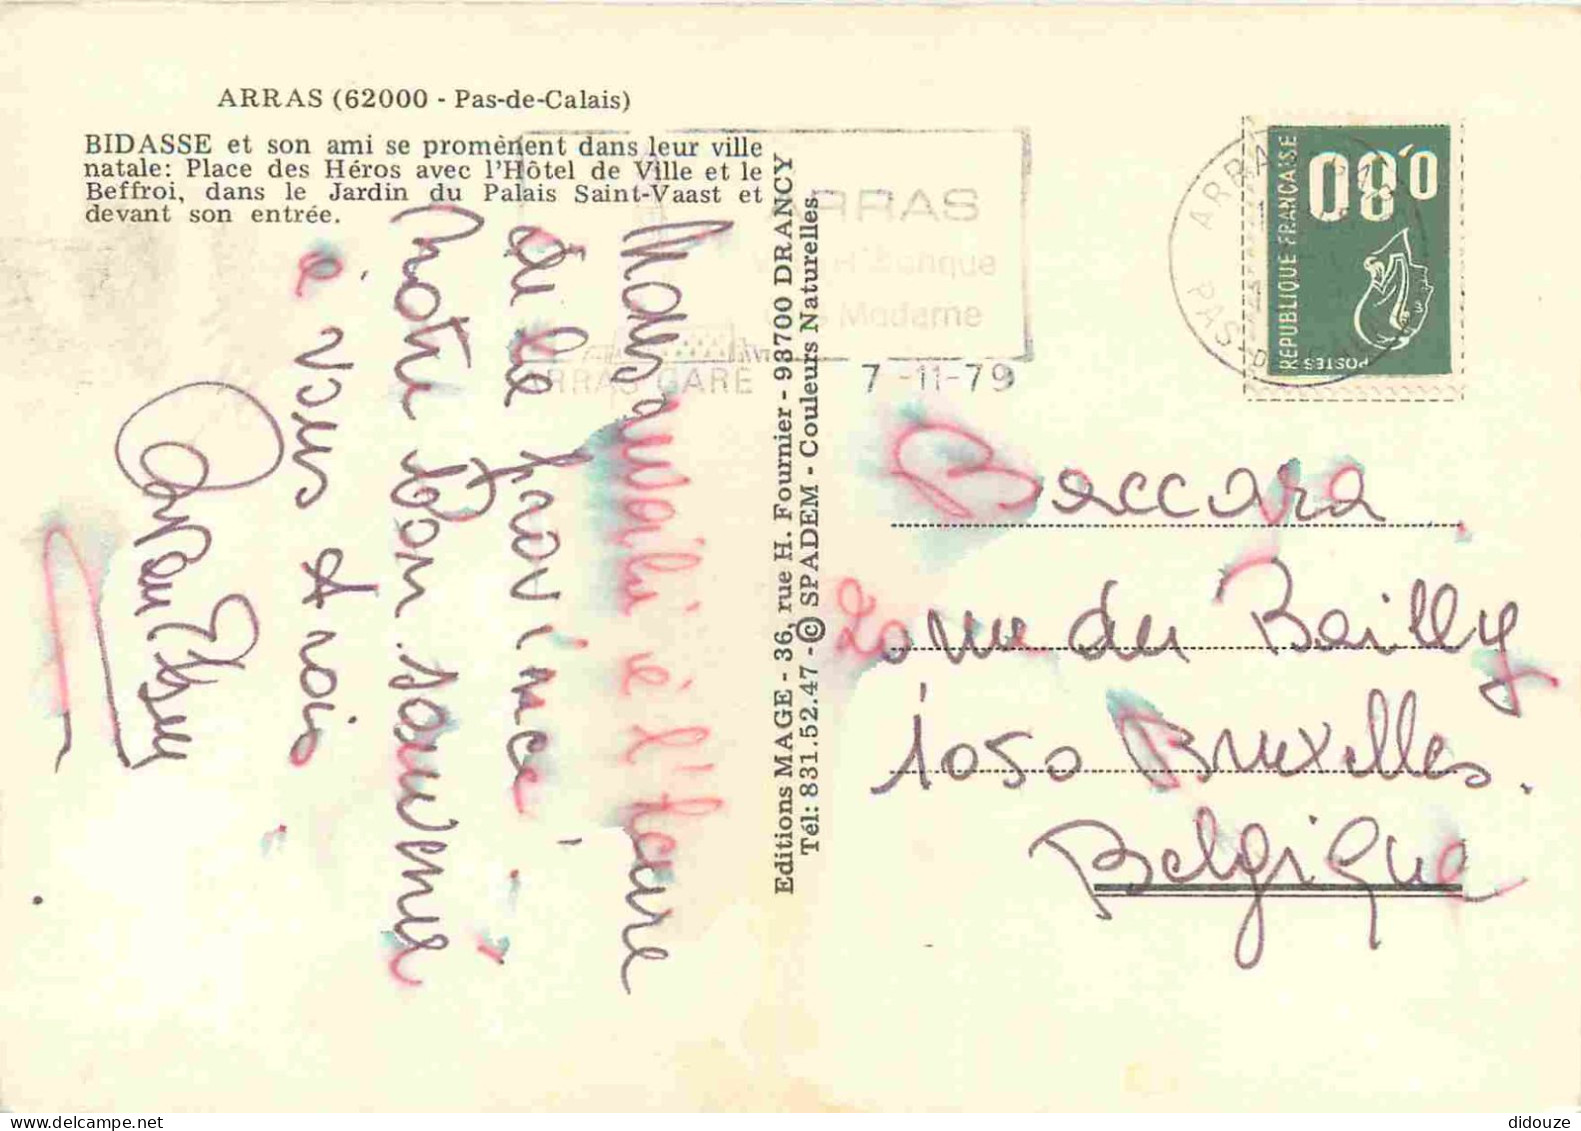 ARRAS (62000 - Pas-de-Calais)
BIDASSE et son ami se promènent dans leur ville
natale: Place des Héros avec l'Hôtel de Ville et le
Beffroi, dans le Jardin du Palais Saint-Vaast et
devant son entrée.
ARRAS
Moderne
ARRAS GARE 7-11-79
ARRAS
PAS-D
0,80
REPUBLIQUE FRANÇAISE
POSTES
Editions MAGE - 36, rue H. Fournier - 93700 DRANCY
Tél: 831.52.47 - © SPADEM - Couleurs Naturelles.
à l'heure
de la province
notre bon souvenir
à vous trois
Baccara
20 rue du Bailly
1050 Bruxelles.
Belgique
didouze